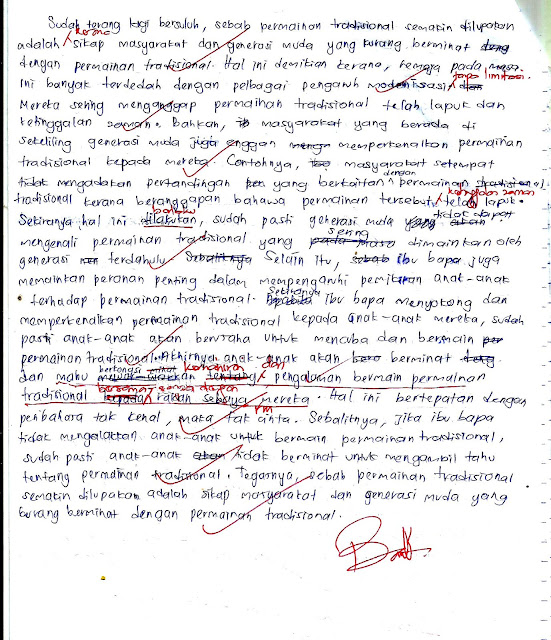 Sudah terang lagi bersuluh, sebab permainan tradisional semakin dilupakan
kerana
adalah sikap masyarakat dan generasi muda yang kurang berminat
dengan permainan tradisional. Hal ini demikian kerana, remaja pada masa
tanpa limitasi.
ini banyak terdedah dengan pelbagai pengaruh modenisasi dan
Mereka sering menganggap permainan tradisional telah lapuk dan
ketinggalan zaman. Bahkan, masyarakat yang berada di
sekeliling generasi muda juga enggan memperkenalkan permainan
tradisional kepada mereka. Contohnya, masyarakat setempat
tidak mengadakan pertandingan yang berkaitan dengan permainan
tradisional kerana beranggapan bahawa permainan tersebut telah lapuk.
Sekiranya hal ini dilakukan, sudah pasti generasi muda yang akan tidak dapat
mengenali permainan tradisional yang pada masa sering dimainkan oleh
generasi terdahulu. Sebaliknya Selain itu, sebab ibu bapa juga
memainkan peranan penting dalam mempengaruhi pemikiran anak-anak
terhadap permainan tradisional. Sekiranya ibu bapa menyokong dan
memperkenalkan permainan tradisional kepada anak-anak mereka, sudah
pasti anak-anak akan berusaha untuk mencuba dan bermain
permainan tradisional. Akhirnya anak-anak akan berminat
dan mahu tentang pengalaman bermain permainan
tradisional kepada rakan sebaya mereka. Hal ini bertepatan dengan
peribahasa tak kenal, maka tak cinta. Sebaliknya, jika ibu bapa
tidak mengalakkan anak-anak untuk bermain permainan tradisional,
sudah pasti anak-anak akan tidak berminat untuk mengambil tahu
tentang permainan tradisional. Tegasnya, sebab permainan tradisional
semakin dilupakan adalah sikap masyarakat dan generasi muda yang
kurang berminat dengan permainan tradisional.